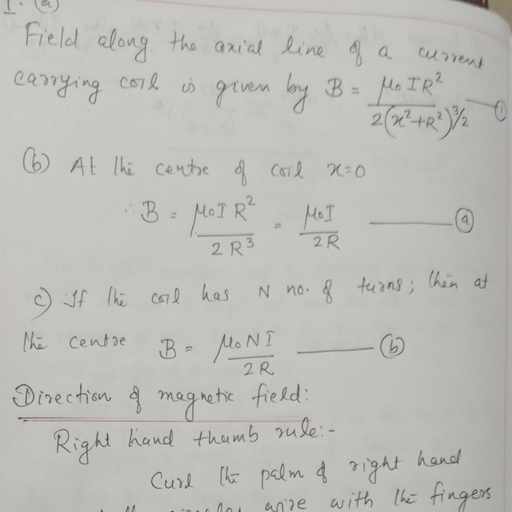 I. (a)
Field along the axial line of a current
carrying coil is given by B = μ₀IR² / 2(x²+R²)^3/2 —— ①
(b) At the centre of coil x=0
∴ B = μ₀I R² / 2R³ = μ₀I / 2R —— ⓐ
c) If the coil has N no. of turns; then at
the centre B = μ₀NI / 2R —— ⓑ
Direction of magnetic field:
Right hand thumb rule:-
Curl the palm of right hand
wire with the fingers